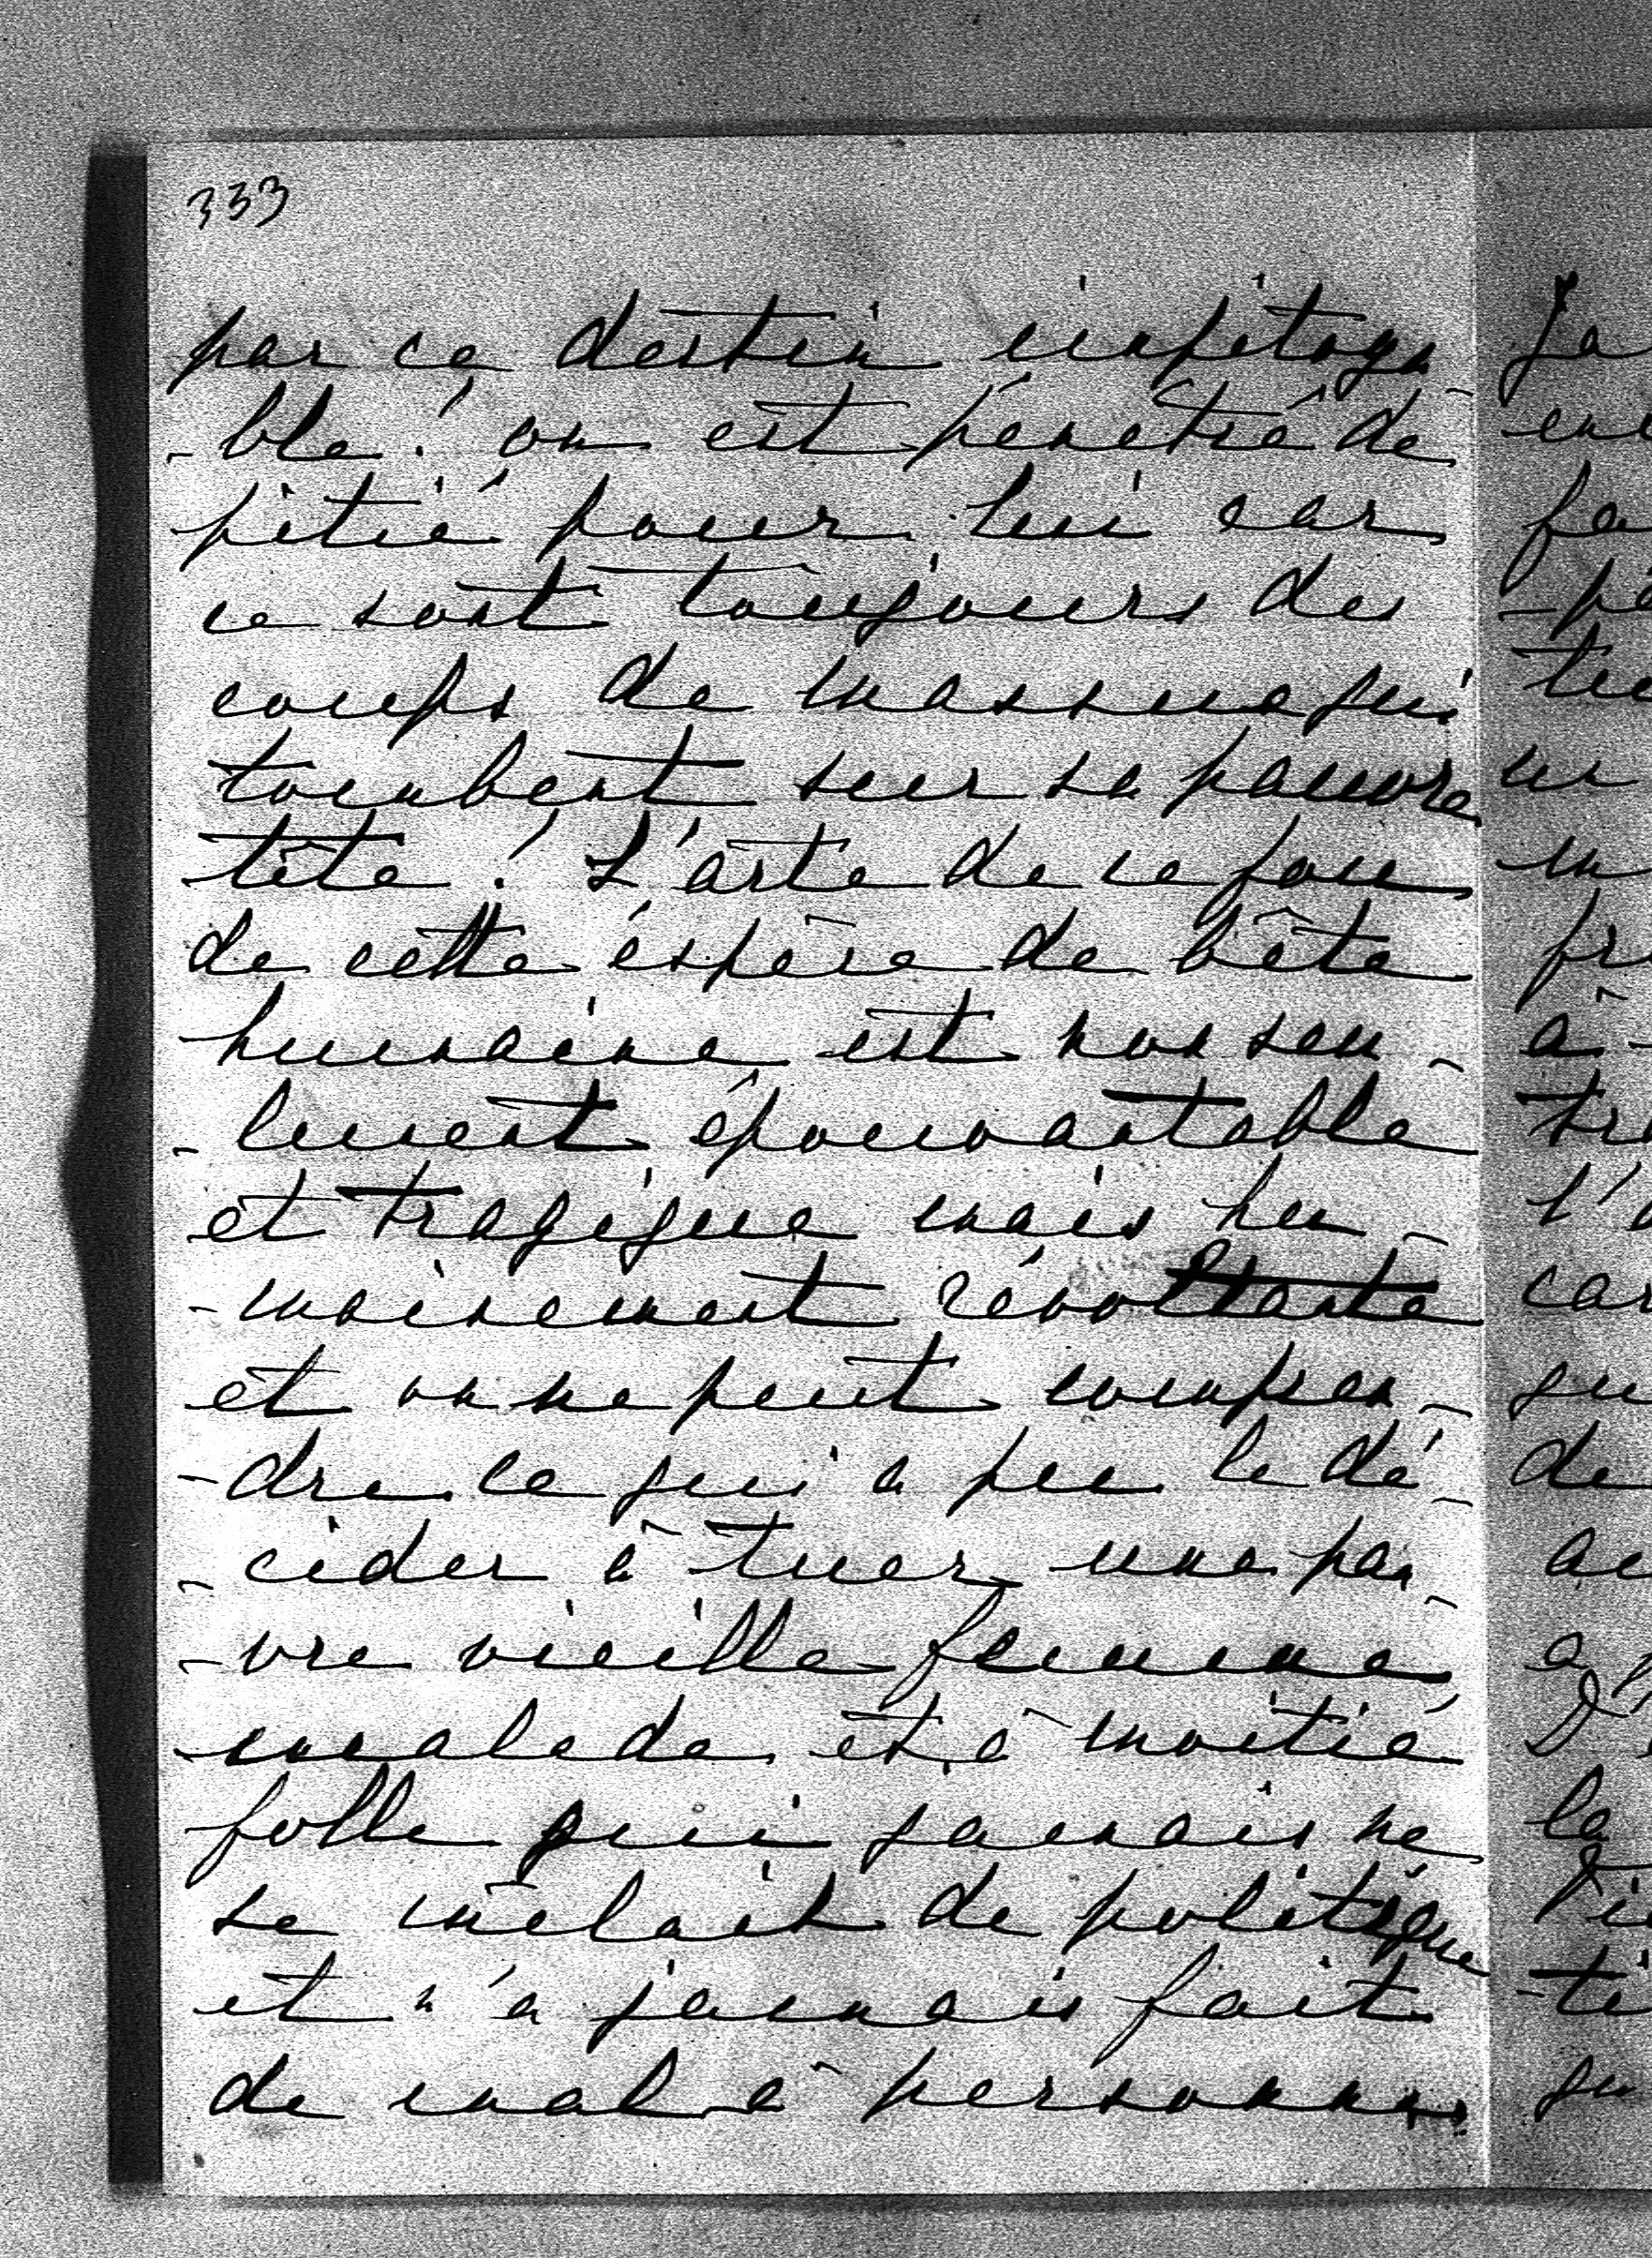 333
par ce destin impitoya-
-ble! on est pénétré de
pitié pour lui car
ce sont toujours des
coups de massue qui
tombent sur sa pauvre
tête! L'acte de ce fou
de cette espèce de bête
humaine est non seu-
-lement épouvantable
et tragique mais hu-
-mainement révoltante
et on ne peut compren-
-dre ce qui a pu le dé-
-cider à tuer une pau-
-vre vieille femme
malade et à moitié
folle qui jamais ne
se mêlait de politique
et n'a jamais fait
de mal à personne.